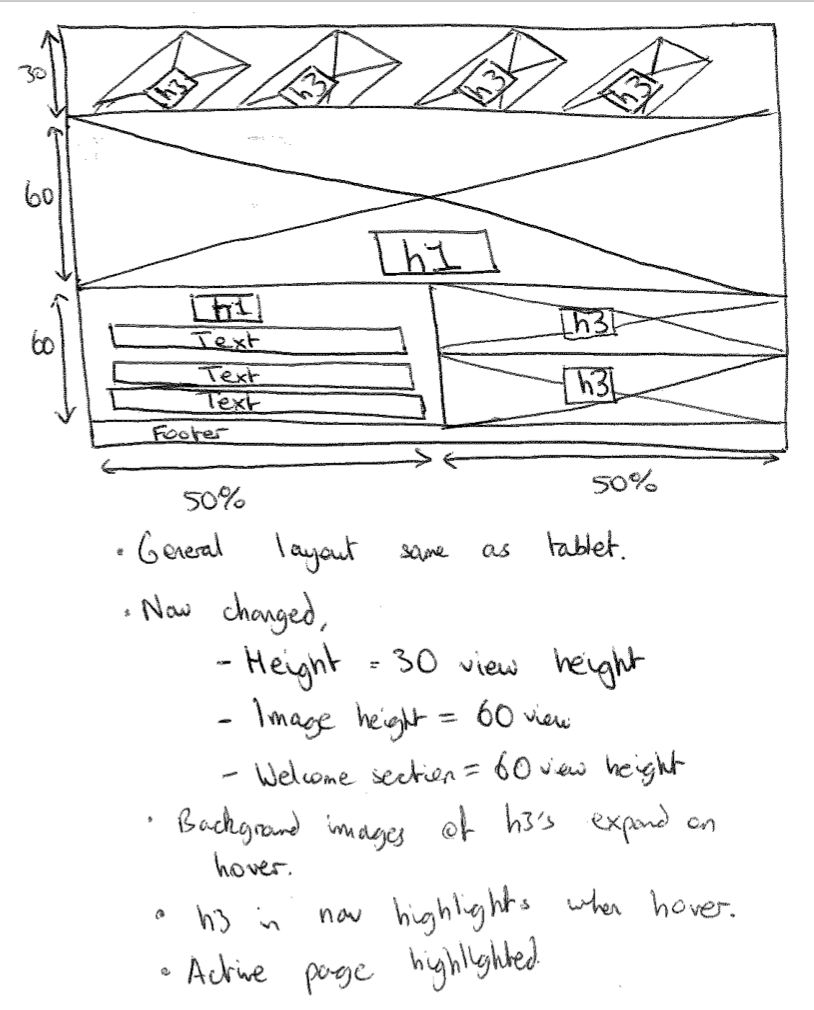 30
h3 h3 h3 h3
60
h1
60
h1
Text
Text
Text
h3
h3
Footer
50% 50%
• General layout same as tablet.
• Nav changed,
- Height = 30 view height
- Image height = 60 view
- Welcome section = 60 view height
• Background images of h3's expand on
hover.
• h3 in nav highlights when hover.
• Active page highlighted